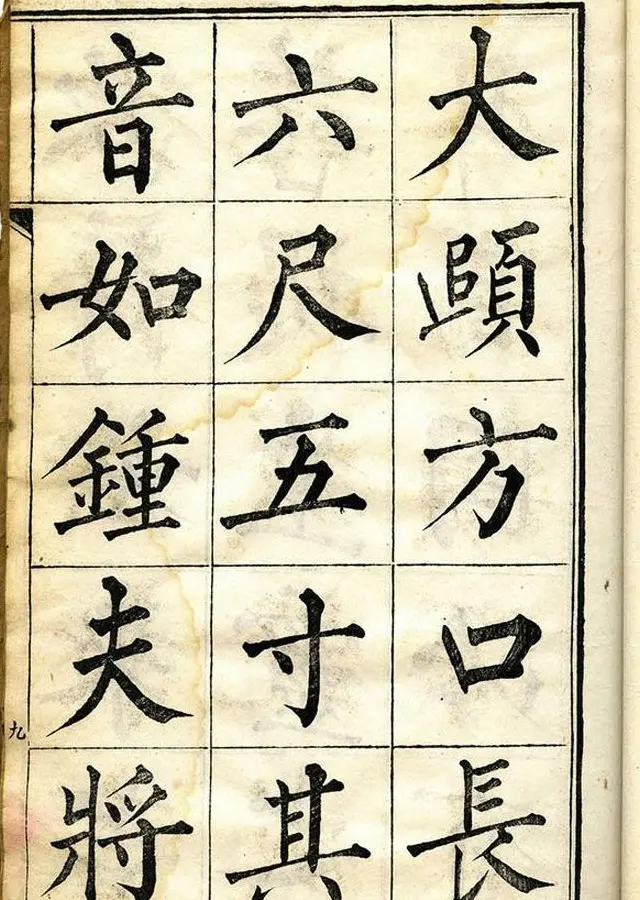 大頤方口長
六尺五寸其
音如鍾夫將
九